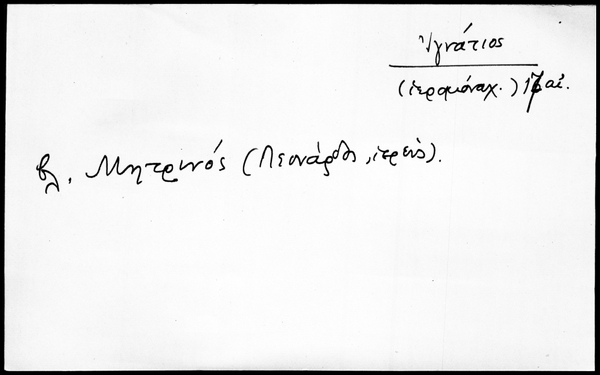 Ἰγνάτιος
(ἱερομόναχ.) 17 αἰ.
βλ. Μητρινός (Λεονάρδος, ἱερεύς).